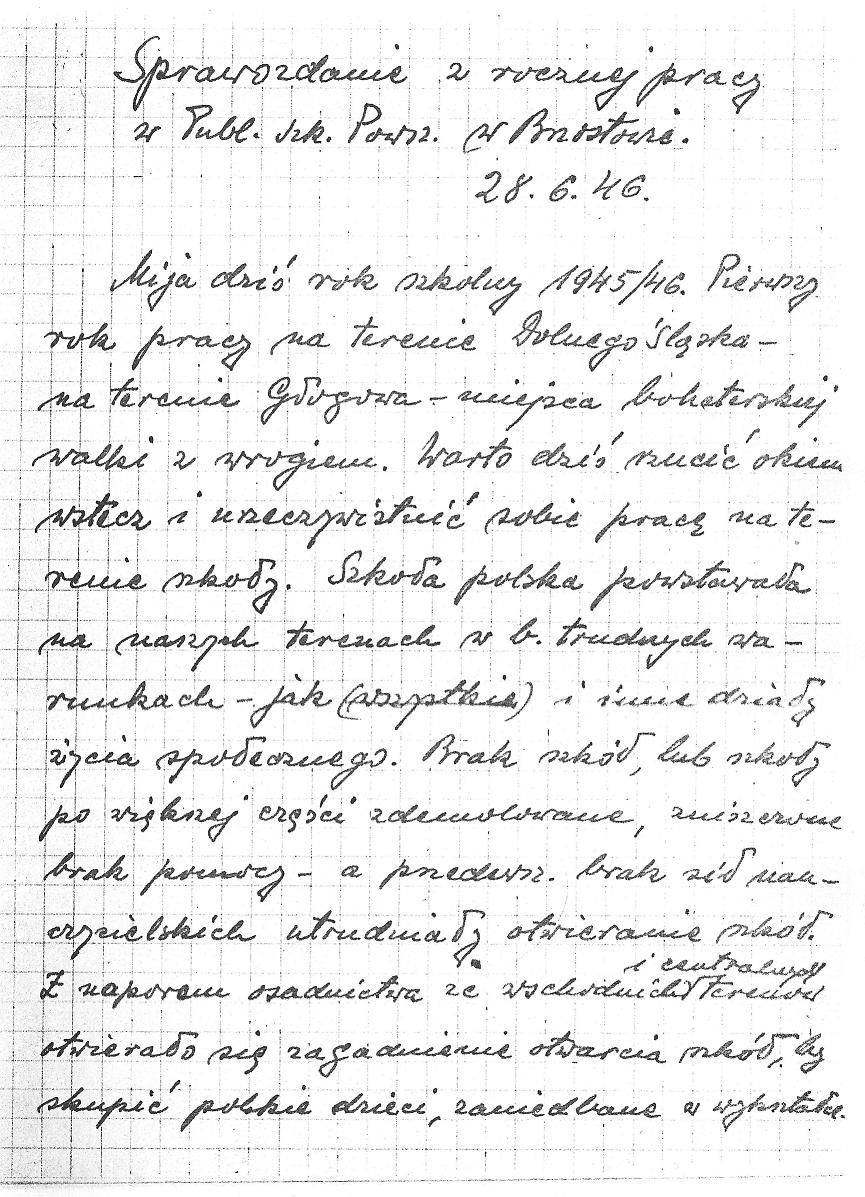 Sprawozdanie z rocznej pracy
w Publ. szk. Powsz. w Brzostowie.
28. 6. 46.
Mija dziś rok szkolny 1945/46. Pierwszy
rok pracy na terenie Dolnego Śląska –
na terenie Głogowa – miejsca bohaterskiej
walki z wrogiem. Warto dziś rzucić okiem
wstecz i urzeczywistnić sobie pracę na te-
renie szkoły. Szkoła polska powstawała
na naszych terenach w b. trudnych wa-
runkach – jak (wszystkie) i inne działy
życia społecznego. Brak szkół, lub szkoły
po większej części zdemolowane, zniszczone
brak pomocy – a przedewsz. brak sił nau-
czycielskich utrudniały otwieranie szkół.
i centralnych
Z naporem osadnictwa ze wschodnich terenów
otwierało się zagadnienie otwarcia szkół, by
skupić polskie dzieci, zaniedbane w wykształc.